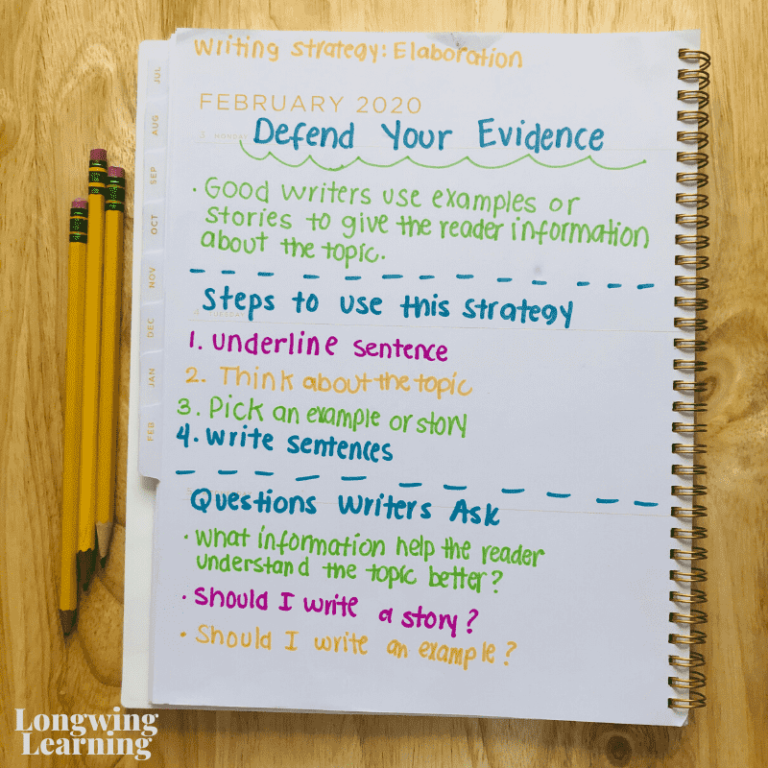 Writing Strategy: Elaboration
FEBRUARY 2020
Defend Your Evidence
· Good writers use examples or
stories to give the reader information
about the topic.
Steps to use this strategy
1. underline sentence
2. Think about the topic
3. Pick an example or story
4. write sentences
Questions Writers Ask
· what information help the reader
understand the topic better?
· Should I write a story?
· Should I write an example?
JUL
AUG
SEP
OCT
NOV
DEC
JAN
FEB
Longwing
Learning